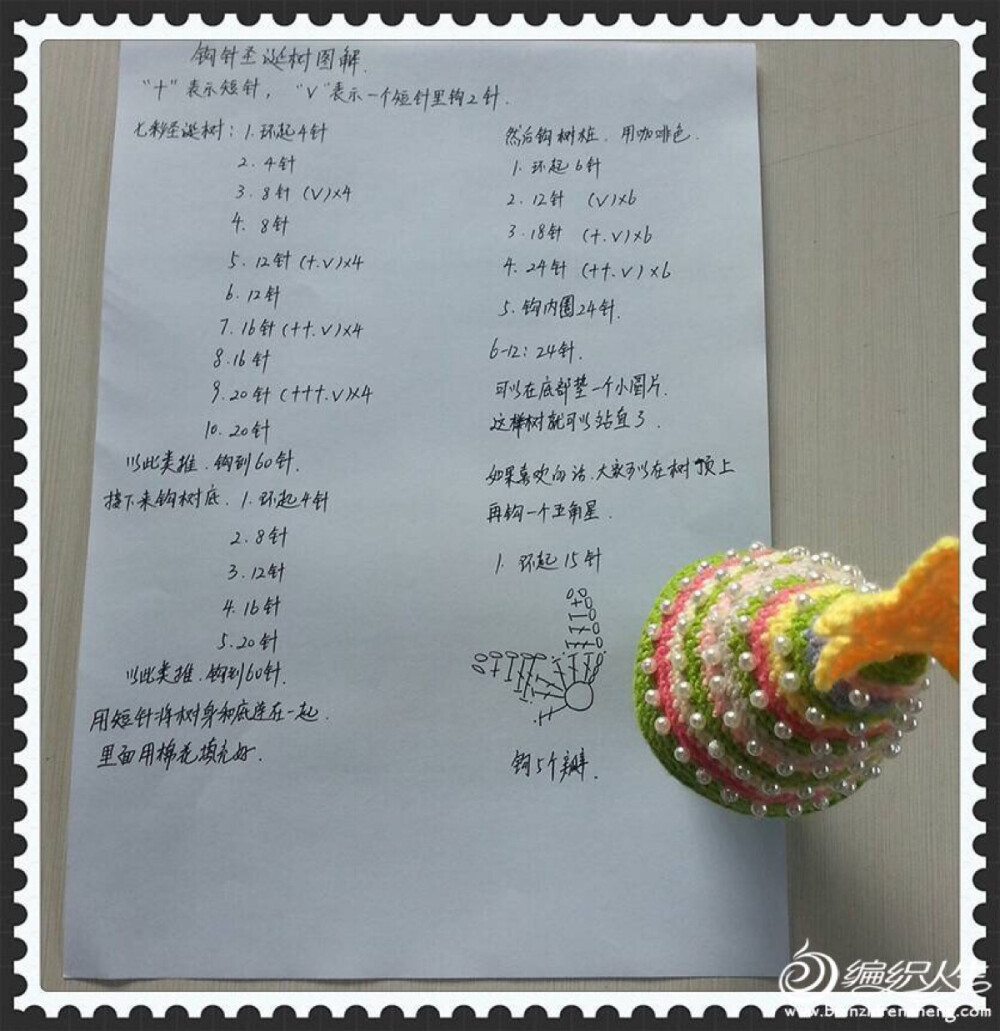 钩针圣诞树图解.
"+"表示短针, "V"表示一个短针里钩2针.
七彩圣诞树: 1. 环起4针
2. 4针
3. 8针 (V)×4
4. 8针
5. 12针 (+.V)×4
6. 12针
7. 16针 (++.V)×4
8. 16针
9. 20针 (+++.V)×4
10. 20针
以此类推.钩到60针.
接下来钩树底. 1. 环起4针
2. 8针
3. 12针
4. 16针
5. 20针
以此类推.钩到60针.
用短针将树身和底连在一起.
里面用棉花填充好.
然后钩树桩. 用咖啡色.
1. 环起6针
2. 12针 (V)×6
3. 18针 (+.V)×6
4. 24针 (++.V)×6
5. 钩内圈24针.
6-12: 24针.
可以在底部垫一个小圆片.
这样树就可以站直了.
如果喜欢的话.大家可以在树顶上
再钩一个五角星.
1. 环起15针
钩5个瓣.
编织人生
www.bianzhirensheng.com